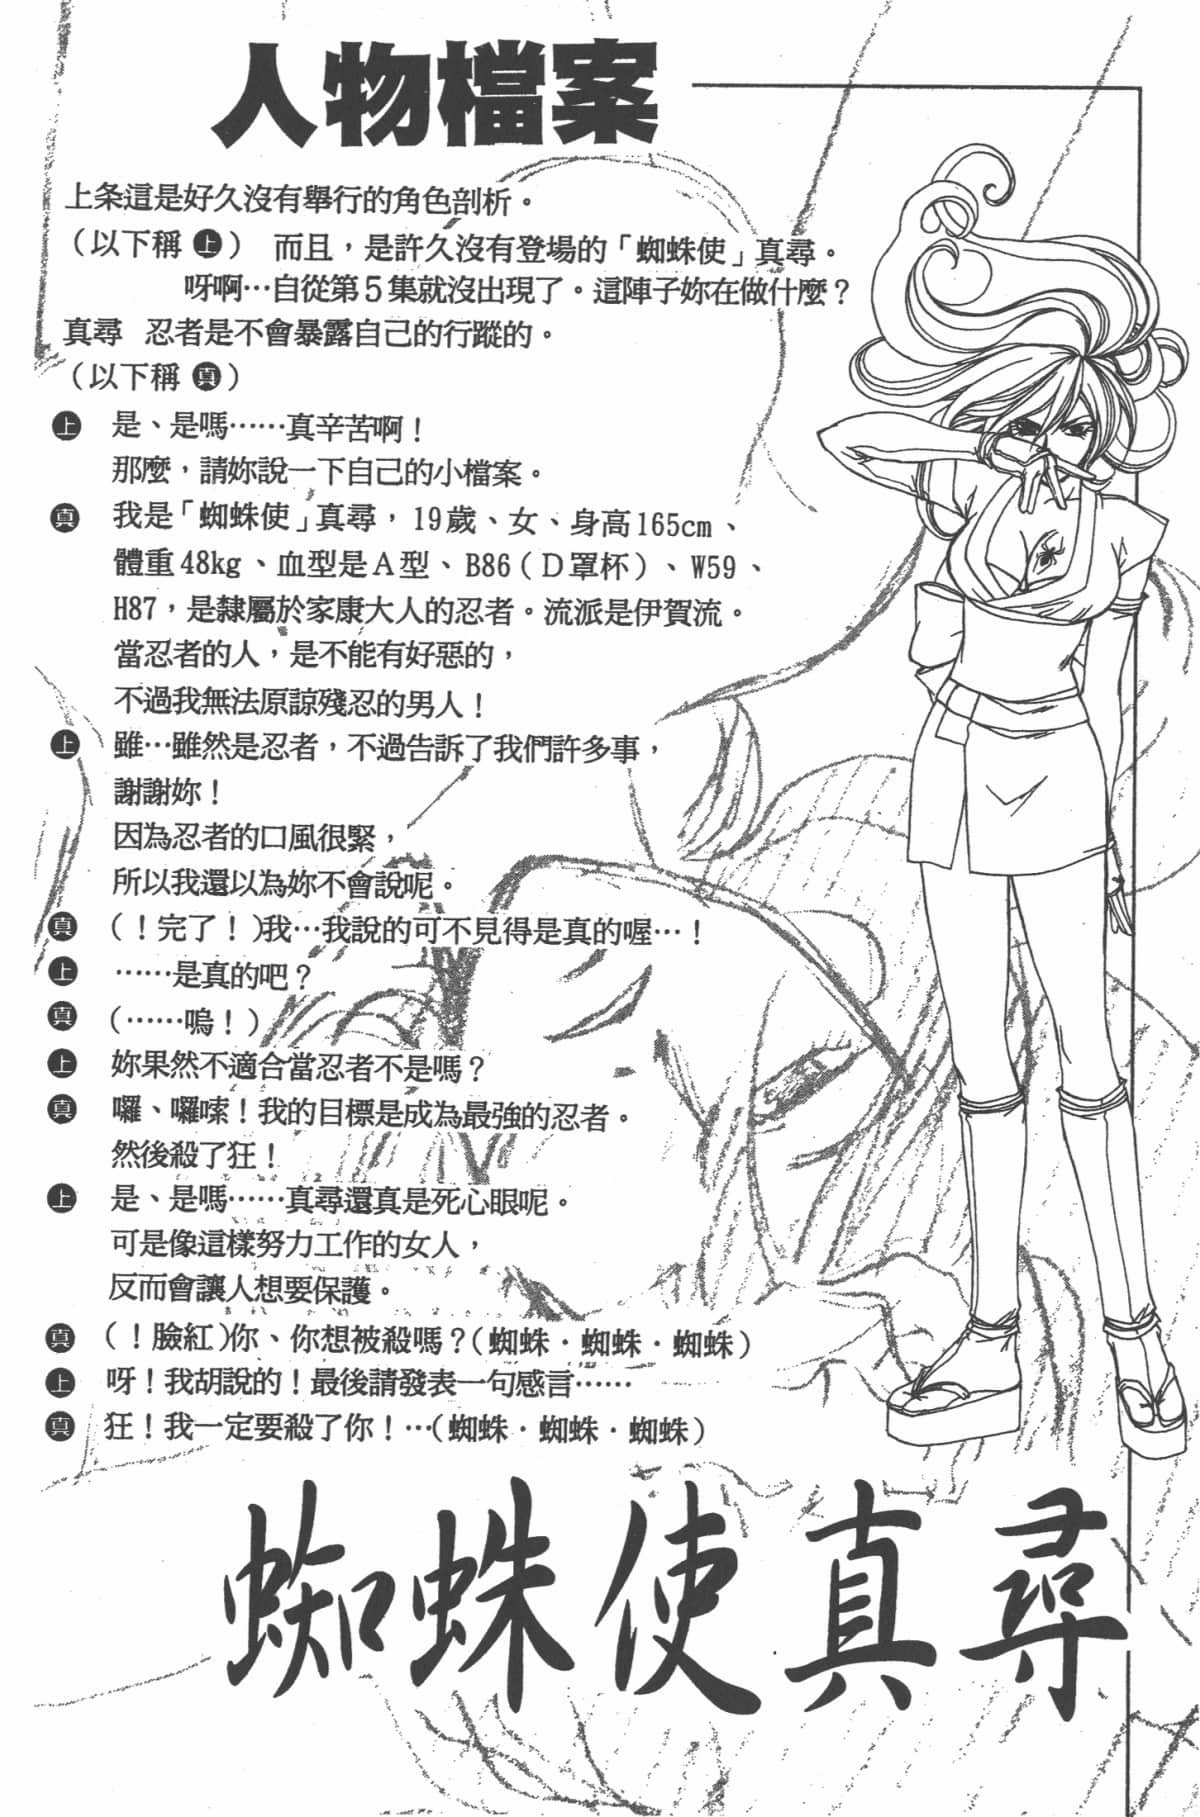 人物檔案
上条這是好久沒有舉行的角色剖析。
（以下稱 上） 而且，是許久沒有登場的「蜘蛛使」真尋。
呀啊…自從第5集就沒出現了。這陣子妳在做什麼？
真尋 忍者是不會暴露自己的行蹤的。
（以下稱 真）
上 是、是嗎……真辛苦啊！
那麼，請妳說一下自己的小檔案。
真 我是「蜘蛛使」真尋，19歲、女、身高165cm、
體重48kg、血型是A型、B86（D罩杯）、W59、
H87，是隸屬於家康大人的忍者。流派是伊賀流。
當忍者的人，是不能有好惡的，
不過我無法原諒殘忍的男人！
上 雖…雖然是忍者，不過告訴了我們許多事，
謝謝妳！
因為忍者的口風很緊，
所以我還以為妳不會說呢。
真 （！完了！）我…我說的可不見得是真的喔…！
上 ……是真的吧？
真 （……嗚！）
上 妳果然不適合當忍者不是嗎？
真 囉、囉嗦！我的目標是成為最強的忍者。
然後殺了狂！
上 是、是嗎……真尋還真是死心眼呢。
可是像這樣努力工作的女人，
反而會讓人想要保護。
真 （！臉紅）你、你想被殺嗎？（蜘蛛．蜘蛛．蜘蛛）
上 呀！我胡說的！最後請發表一句感言……
真 狂！我一定要殺了你！…（蜘蛛．蜘蛛．蜘蛛）
蜘蛛使真尋